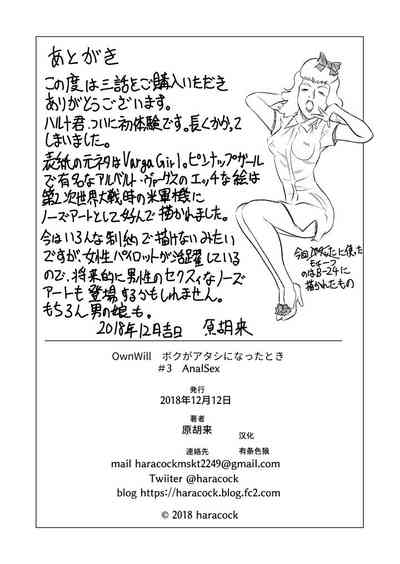 あとがき
この度は三話をご購入いただき
ありがとうございます。
ハルナ君、ついに初体験です。長くかかって
しまいました。
表紙の元ネタはVarga Girl。ピンナップガール
で有名なアルベルト・ヴァーガスのエッチな絵は
第2次世界大戦時の米軍機に
ノーズアートとして好んで描かれました。
今はいろんな制約で描けないみたい
ですが、女性パイロットが活躍している
ので、将来的に男性のセクスィなノーズ
アートも登場するかもしれません。
もちろん男の娘も。
2018年12月吉日 原胡来
今回
に使った
モチーフ
のはB-24に
描かれたもの
OwnWill ボクがアタシになったとき
#3 AnalSex
発行
2018年12月12日
著者
原胡来
汉化
連絡先
有条色狼
mail haracockmskt2249@gmail.com
Twiiter @haracock
blog https://haracock.blog.fc2.com
© 2018 haracock